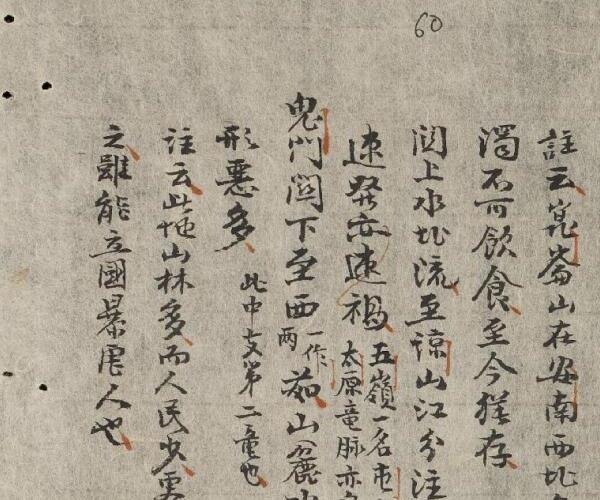 60
註云崑崙山在安南西北
濁不可飲食至今猶存
関上水北流至諒山江分注
速發亦速禍 五嶺一名
太原竜脉亦
鬼門関下至西 一作
両 茹山麓
形悪多 此中支第二童也
註云此地山林多而人民少更
之雖能立國暴虐人也